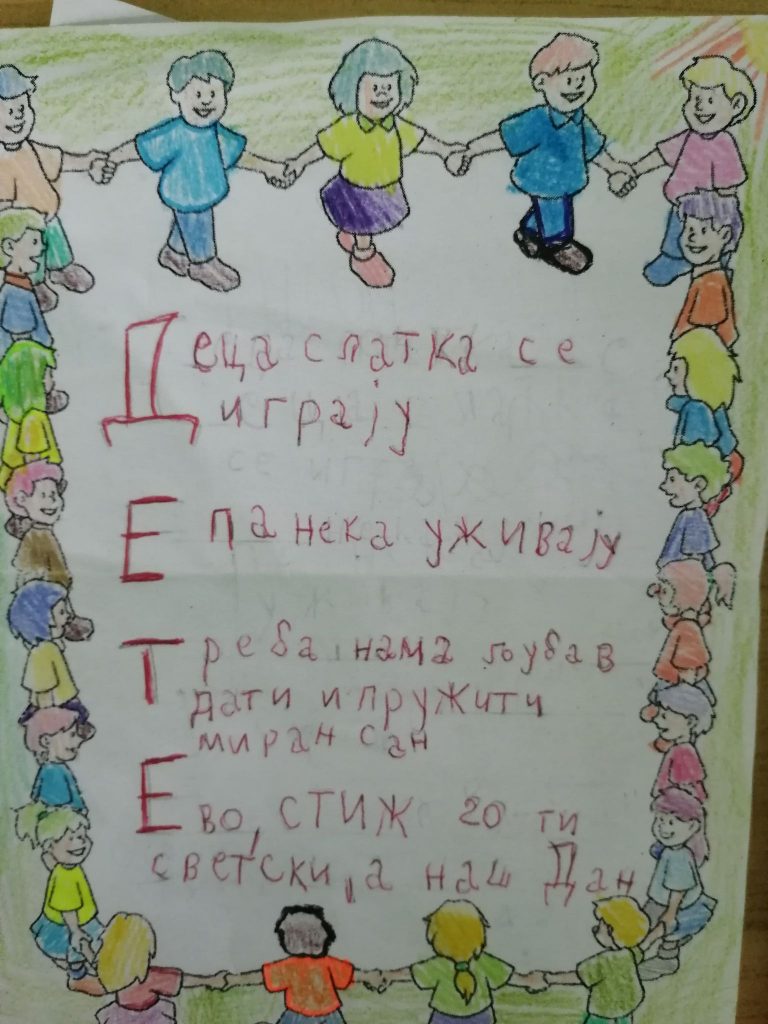 Деца слатка се
играју
Е па нека уживају
Треба нама љубав
дати и пружити
миран сан
Ево, СТИЖ 20 ти
светски, а наш Дан